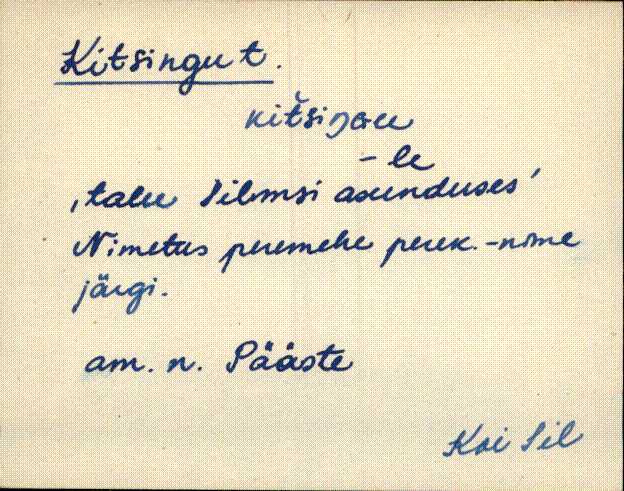 Kitsingu t.
kit̆siŋGu
-le
'talu Silmsi asunduses'
Nimetus peremehe perek.-nime
järgi.
am. n. Pääste
Koi Sil